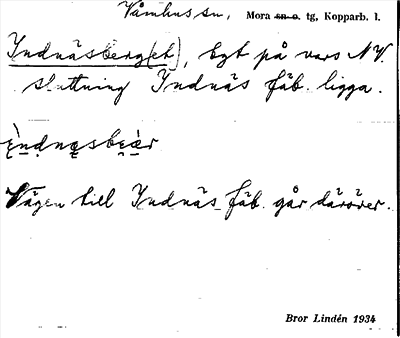 Våmhus sn, Mora sn o. tg, Kopparb. l.
Indnäsberg(et), högt på vars N.V.
sluttning Indnäs fäb. ligga.
Vägen till Indnäs fäb. går däröver.
Bror Lindén 1934